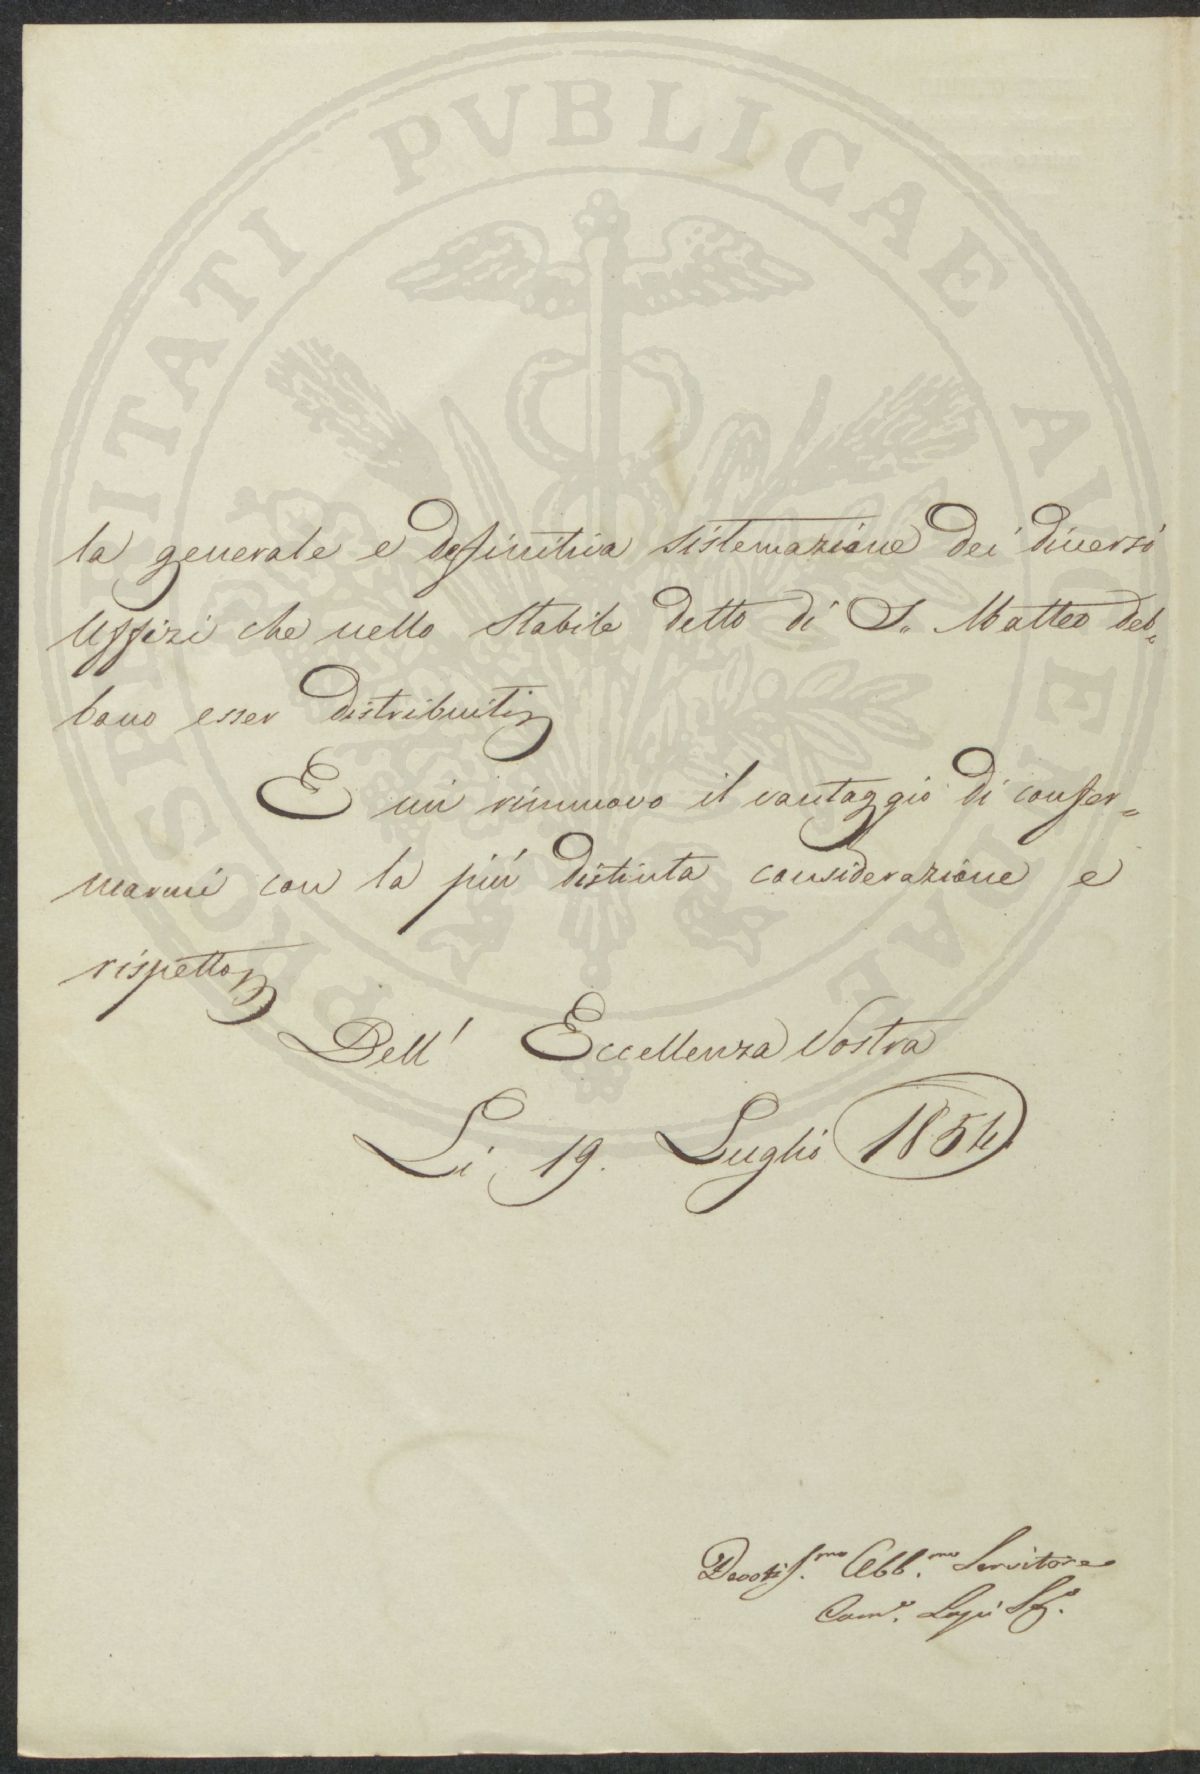 PROSPERITATI PVBLICAE AVGENDAE
la generale e definitiva sistemazione dei diversi
Uffizi che nello Stabile detto di S. Matteo deb=
bano esser distribuiti
E mi rinnuovo il vantaggio di confer=
marmi con la più distinta considerazione e
rispetto
Dell' Eccellenza Vostra
Li 19. Luglio 1854.
Devotiss.mo Obb.mo Servitore